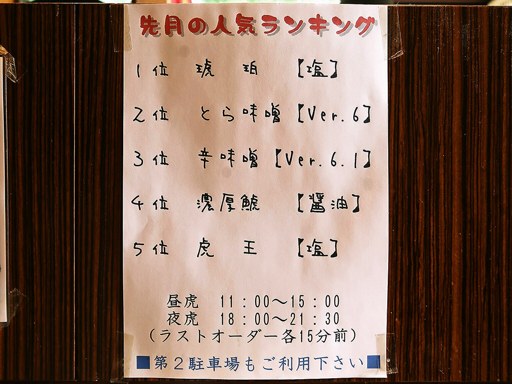 先月の人気ランキング
1位 琥珀 【塩】
2位 とら味噌【Ver.6】
3位 辛味噌【Ver.6.1】
4位 濃厚鯱 【醤油】
5位 虎王 【塩】
昼虎 11：00～15：00
夜虎 18：00～21：30
(ラストオーダー各15分前)
■第2駐車場もご利用下さい■